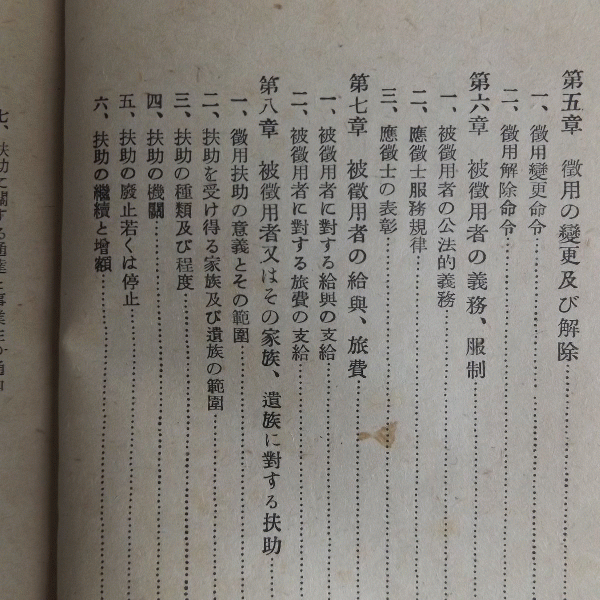 第五章 徴用の變更及び解除
一、徴用變更命令
二、徴用解除命令
第六章 被徴用者の義務、服制
一、被徴用者の公法的義務
二、應徴士服務規律
三、應徴士の表彰
第七章 被徴用者の給與、旅費
一、被徴用者に對する給與の支給
二、被徴用者に對する旅費の支給
第八章 被徴用者又はその家族、遺族に對する扶助
一、徴用扶助の意義とその範圍
二、扶助を受け得る家族及び遺族の範圍
三、扶助の種類及び程度
四、扶助の機關
五、扶助の廢止若くは停止
六、扶助の繼續と增額
七、扶助に關する通達と事業主